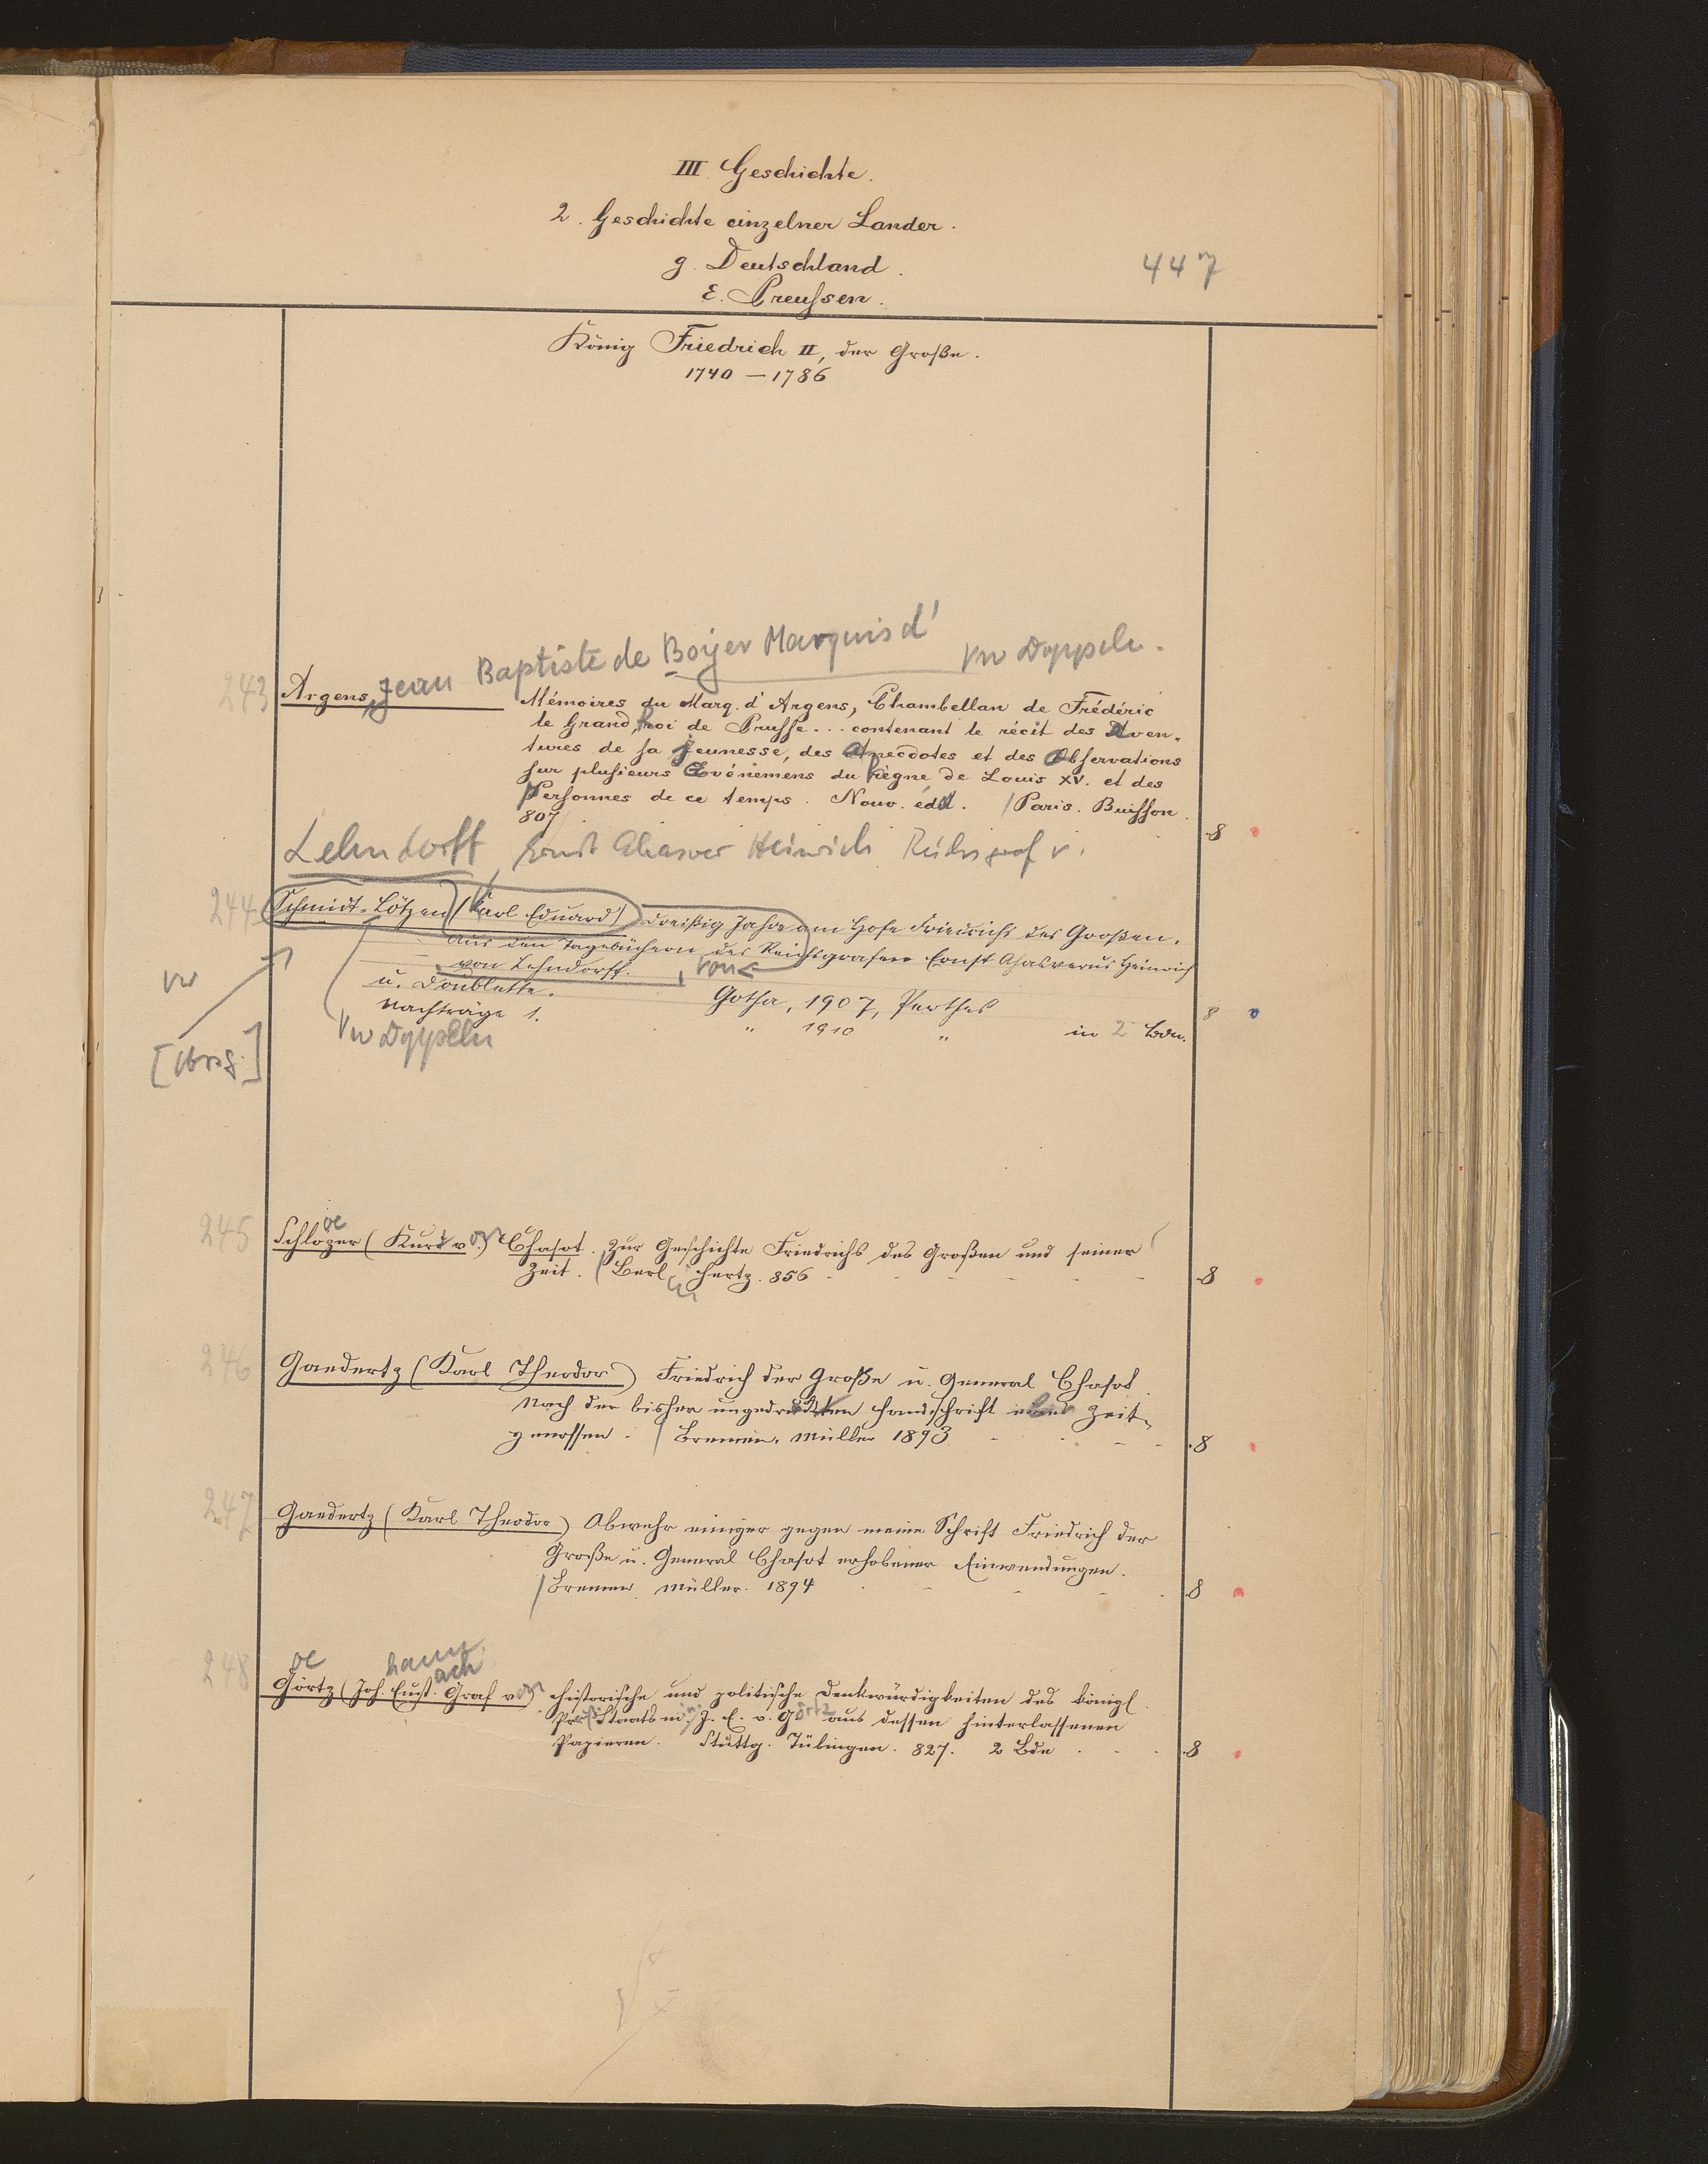 III. Geschichte.
2. Geschichte einzelner Länder.
g. Deutschland.
447
ε. Preußen.
König Friedrich II, der Große.
1740 – 1786
243 Argens, Jean Baptiste de Boyer Marquis d'
Vw Doppeln.
Mémoires du Marq. d'Argens, Chambellan de Frédéric
le Grand, Roi de Prusse... contenant le récit des Aven-
tures de sa Jeunesse, des Anecdotes et des Observations
sur plusieurs Evénemens du Règne de Louis XV. et des
Personnes de ce temps. Nouv. édit. / Paris. Buisson.
807
8
Lehndorff, Ernst Ahasver Heinrich Reichsgraf v.
244 Schmidt-Lötzen (Karl Eduard) Dreißig Jahre am Hofe Friedrichs des Großen.
Aus den Tagebüchern des Reichsgrafen Ernst Ahasverus Heinrich
von Lehndorff. , von
Vw
u. Doublette. Gotha, 1907, Perthes 8
Nachträge 1. " 1910 " in 2 Bdn.
Vw Doppeln
[Hrsg.]
245 Schloezer (Kurt von) Chasot. Zur Geschichte Friedrichs des Großen und seiner
Zeit. / Berlin Hertz. 856 8
246 Gaedertz (Karl Theodor) Friedrich der Große u. General Chasot.
Nach der bisher ungedruckten Handschrift eines Zeit-
genossen. / Bremen, Müller 1893 8
247 Gaedertz (Karl Theodor) Abwehr einiger gegen meine Schrift Friedrich der
Große u. General Chasot erhobener Einwendungen.
/ Bremen, Müller. 1894 8
oe hann ach
248 Görtz (Joh. Eust. Graf von) Historische und politische Denkwürdigkeiten des königl.
Preß. Staatsmin. J. E. v. Görtz aus dessen hinterlassenen
Papieren. Stuttg. Tübingen. 827. 2 Bde 8